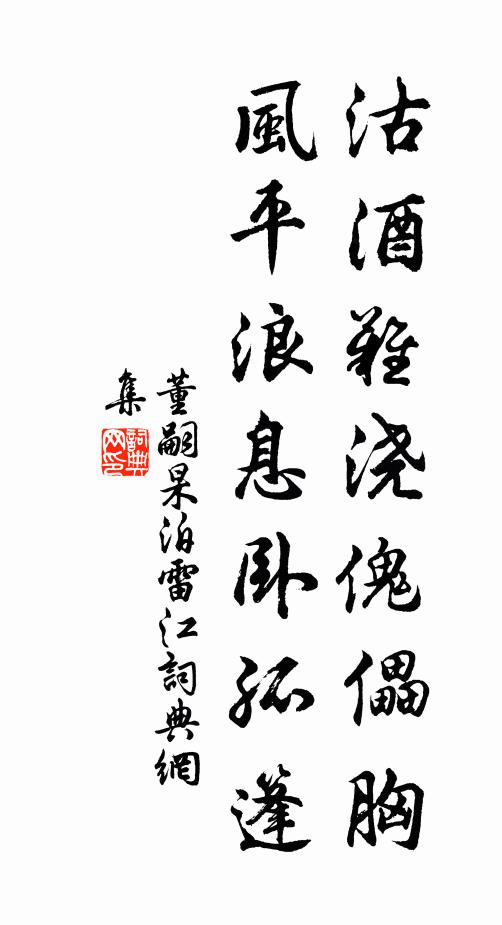 沽酒難澆傀儡胸
風平浪息卧孤篷
董嗣杲泊雷江詞典網
集
詞典
网印